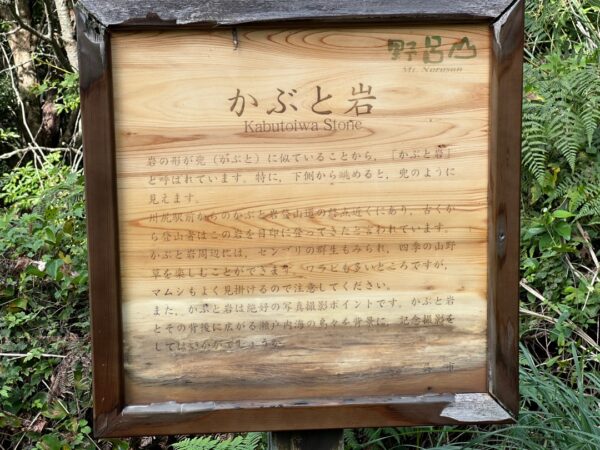 野呂山
Mt. Norosan
かぶと岩
Kabutoiwa Stone
岩の形が兜（かぶと）に似ていることから，「かぶと岩」
と呼ばれています。特に，下側から眺めると，兜のように
見えます。
川尻駅前からのかぶと岩登山道の終点近くにあり，古くか
ら登山者はこの岩を目印に登ってきたと言われています。
かぶと岩周辺には，センブリの群生もみられ，四季の山野
草を楽しむことができます。ワラビも多いところですが，
マムシもよく見掛けるので注意してください。
また，かぶと岩は絶好の写真撮影ポイントです。かぶと岩
とその背後に広がる瀬戸内海の島々を背景に，記念撮影を
してはいかがでしょうか。
呉市